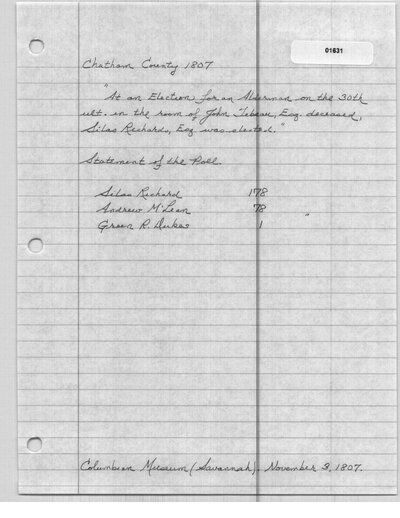 01631
Chatham County 1807
"At an Election for an Alderman on the 30th
ult. in the room of John Tebeau, Esq. deceased,
Silas Richards, Esq. was elected."
Statement of the Poll.
Silas Richard 178
Andrew McLean 78 "
Green R. Dukes 1
Columbian Museum (Savannah). November 3, 1807.